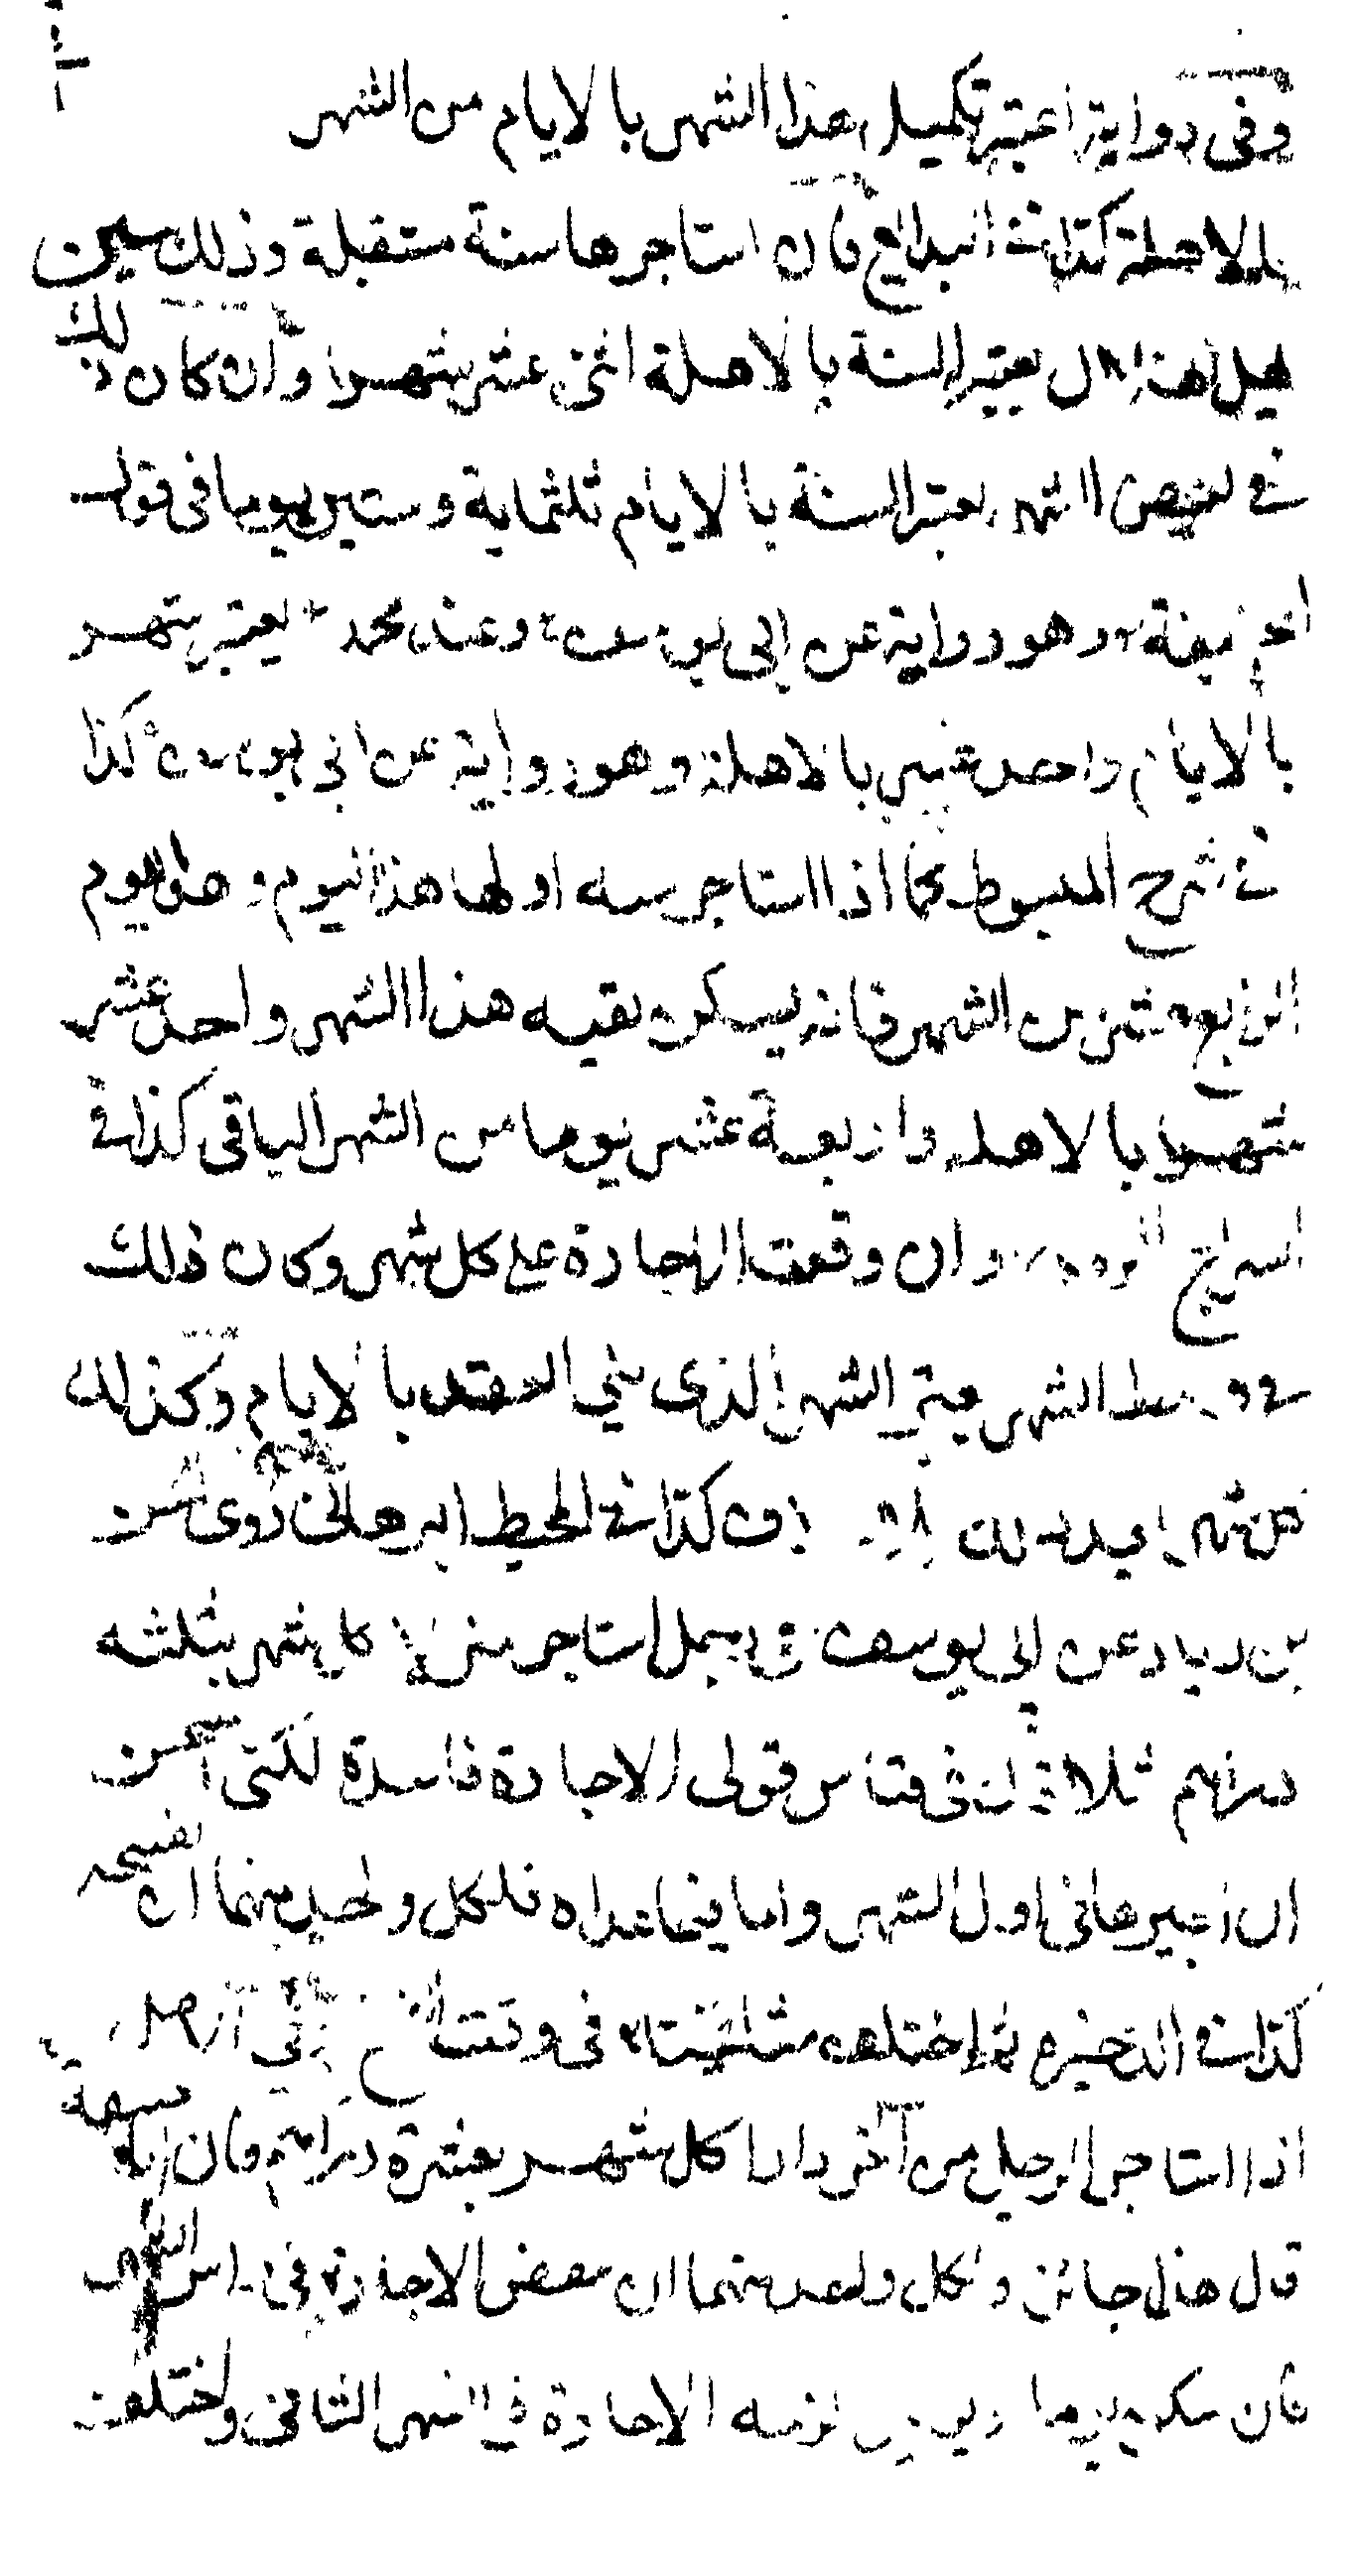 وفى رواية اعتبر تكميل هذا الشهر بالايام من الشهر
بالاهلة كذا فى البدائع فان استاجرها سنة مستقبلة وذلك حين
يهل الهلال يعتبر السنة بالاهلة اثنى عشر شهرا وان كان ذلك
فى بعض الشهر يعتبر السنة بالايام ثلثماية وستين يوما فى قول
ابى حنيفة وهو رواية عن ابى يوسف وعند محمد يعتبر شهر
بالايام واحد عشر بالاهلة وهو رواية عن ابى يوسف كذا
فى شرح المبسوط كما اذا استاجر سنة اولها هذا اليوم وهو اليوم
الرابع عشر من الشهر فانه يسكن بقيه هذا الشهر واحد عشر
شهرا بالاهله واربعة عشر يوما من الشهر الباقى كذا فى
السراج وان وقعت الاجارة على كل شهر وكان ذلك
فى وسط الشهر يعتبر الشهر الذى يلى العقد بالايام وكذلك
كل شهر بعد ذلك كذا فى المحيط البرهانى روى الحسن
بن زياد عن ابى يوسف فى رجل استاجر منزلا كل شهر بثلثه
دراهم ثلاثة ان فى قياس قولى الاجارة فاسدة لكنى استحسن
ان اجيزها فى اول الشهر واما فيما عداه فلكل واحد منهما ان يفسخه
كذا فى الذخيره ثم اختلف مشائخنا فى وقت الفسخ فى الاصل
اذا استاجر الرجل من آخر دارا كل شهر بعشرة دراهم فان ابا حنيفة
قال هذا جائز ولكل واحد منهما ان ينقض الاجارة فى راس الشهر
فان سكن يوما او يومين لزمه الاجارة فى الشهر الثانى واختلف